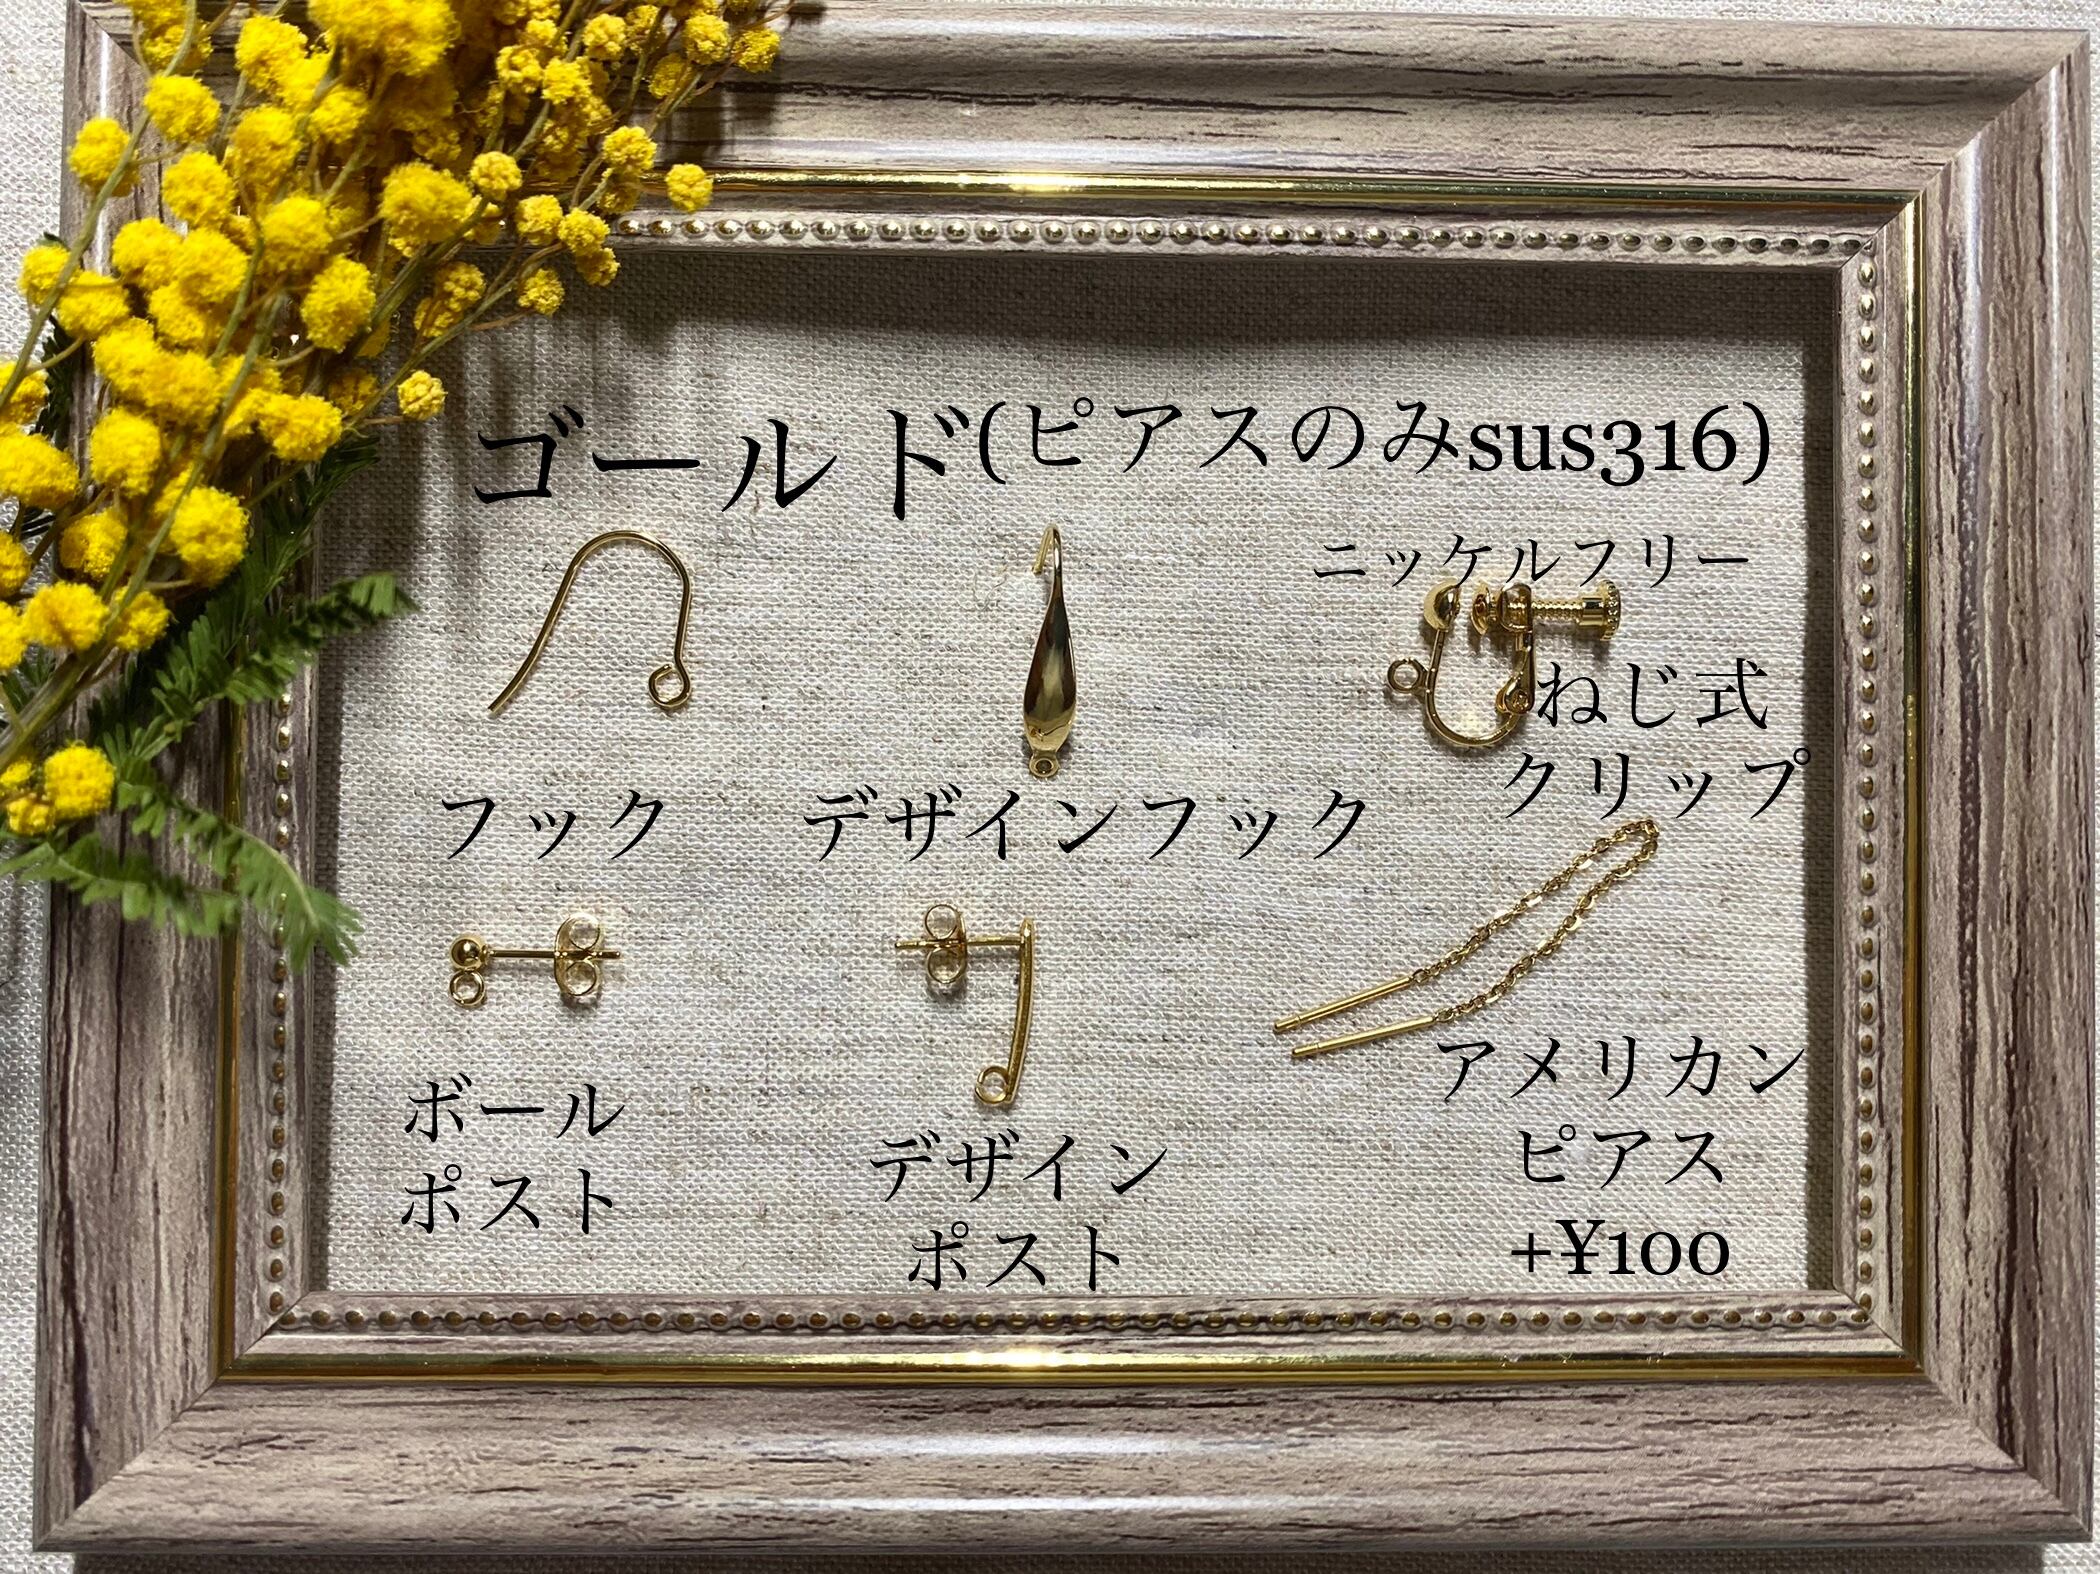 ゴールド(ピアスのみsus316)
ニッケルフリー
ねじ式
クリップ
フック
デザインフック
ボール
ポスト
デザイン
ポスト
アメリカン
ピアス
+¥100